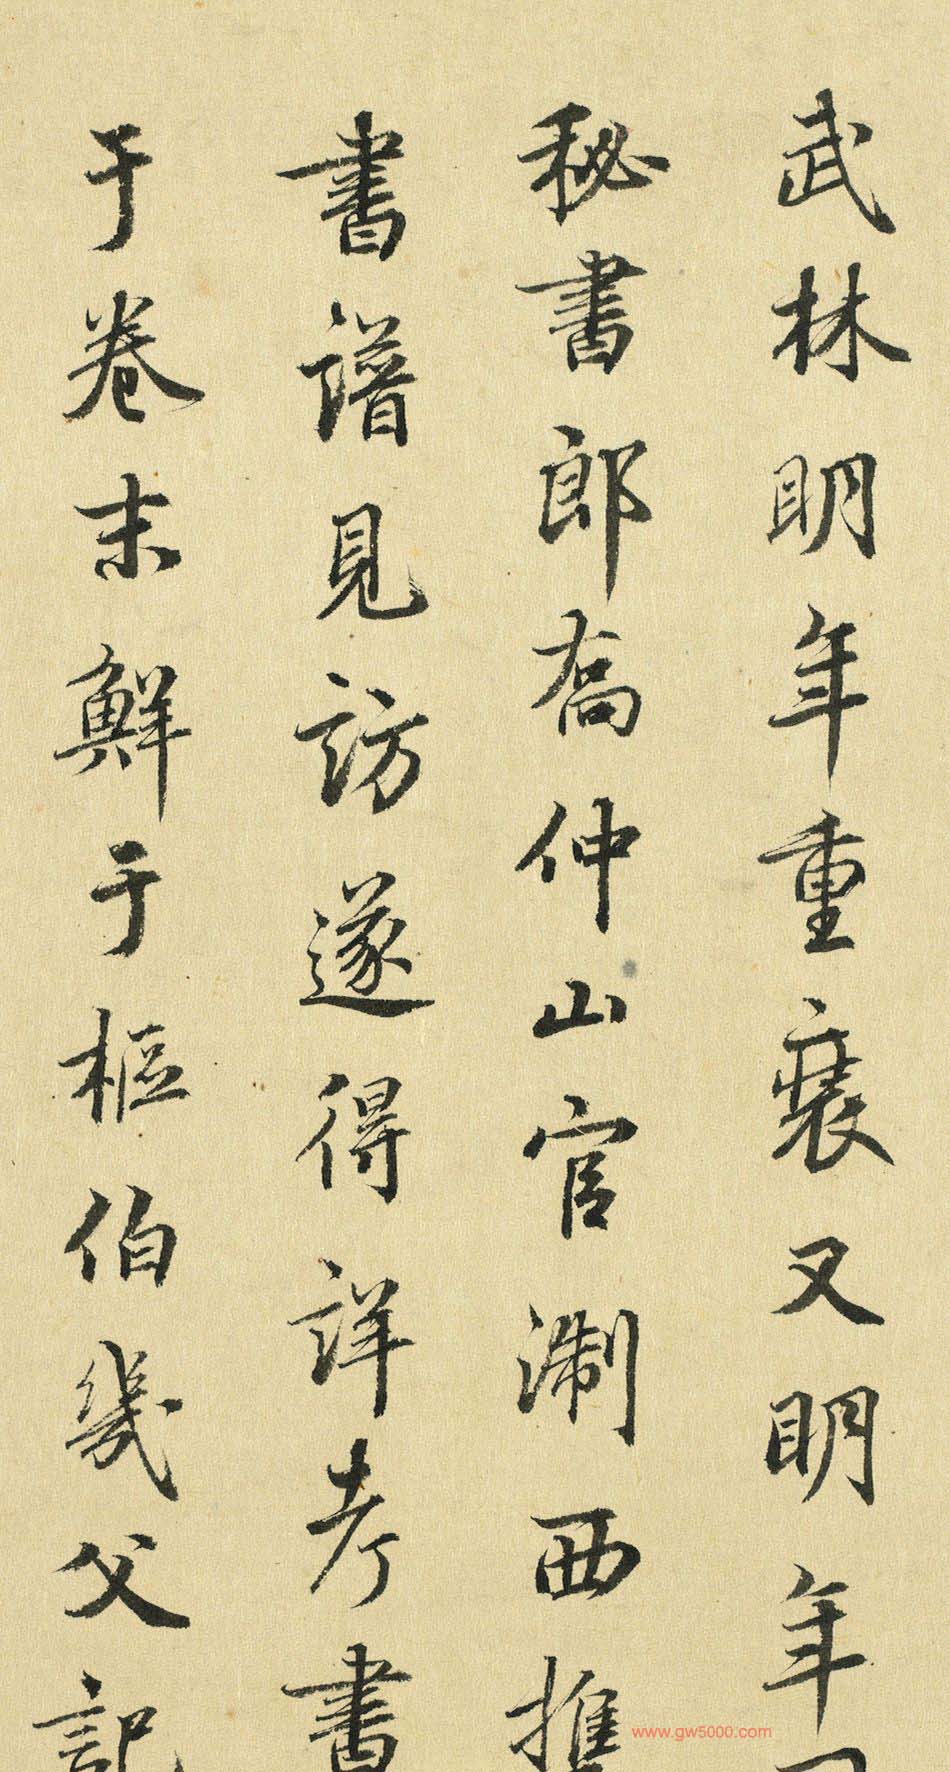 武林明年重裝又明年
秘書郎喬仲山官淛西推
書譜見訪遂得詳考書
于卷末鮮于樞伯幾父記
www.gw5000.com